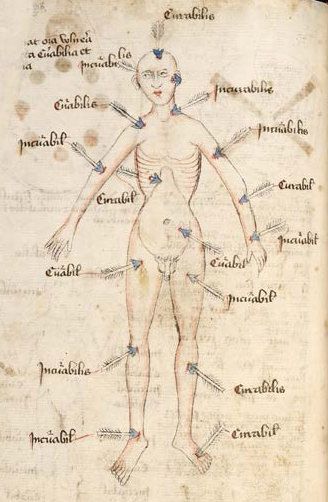 Curabilis
Incurabilis
Incurabilis
Curabilis
Incurabilis
Incurabil
Curabil
Curabil
Incurabil
Curabil
Curabil
Incurabil
Incurabilis
Curabilis
Incurabil
Curabil